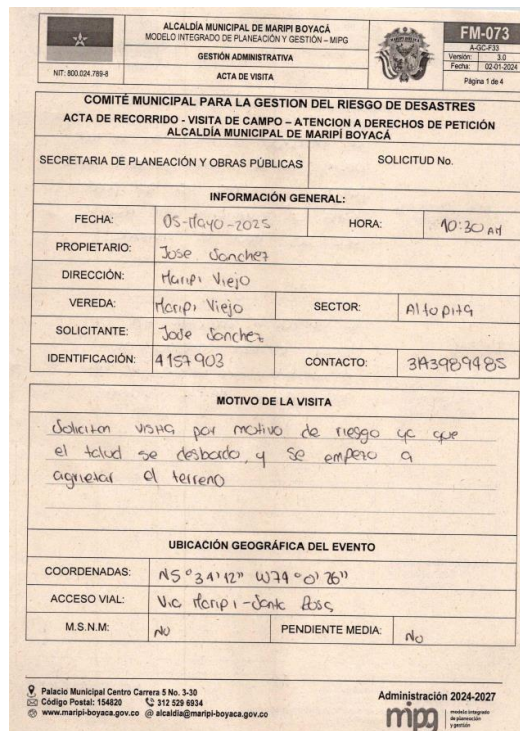 ALCALDÍA MUNICIPAL DE MARIPI BOYACÁ
MODELO INTEGRADO DE PLANEACIÓN Y GESTIÓN – MIPG
GESTIÓN ADMINISTRATIVA
NIT: 800.024.789-8
ACTA DE VISITA
FM-073
A-GC-F33
Versión: 3.0
Fecha: 02-01-2024
Página 1 de 4
COMITÉ MUNICIPAL PARA LA GESTION DEL RIESGO DE DESASTRES
ACTA DE RECORRIDO - VISITA DE CAMPO – ATENCION A DERECHOS DE PETICIÓN
ALCALDÍA MUNICIPAL DE MARIPÍ BOYACÁ
SECRETARIA DE PLANEACIÓN Y OBRAS PÚBLICAS SOLICITUD No.
INFORMACIÓN GENERAL:
FECHA: 05-Mayo-2025 HORA: 10:30 AM
PROPIETARIO: Jose Sanchez
DIRECCIÓN: Maripi Viejo
VEREDA: Maripi Viejo SECTOR: Altopita
SOLICITANTE: Jose Sanchez
IDENTIFICACIÓN: 4157903 CONTACTO: 3143989485
MOTIVO DE LA VISITA
Solicitan visita por motivo de riesgo ya que
el talud se desbordo, y se empezo a
agrietar el terreno
UBICACIÓN GEOGRÁFICA DEL EVENTO
COORDENADAS: N5°34'12" W74°0'26"
ACCESO VIAL: Via Maripi-Santa Rosa
M.S.N.M: NO PENDIENTE MEDIA: No
Palacio Municipal Centro Carrera 5 No. 3-30
Código Postal: 154820 312 529 6934
www.maripi-boyaca.gov.co @ alcaldia@maripi-boyaca.gov.co
Administración 2024-2027
mipg modelo integrado
de planeación
y gestión